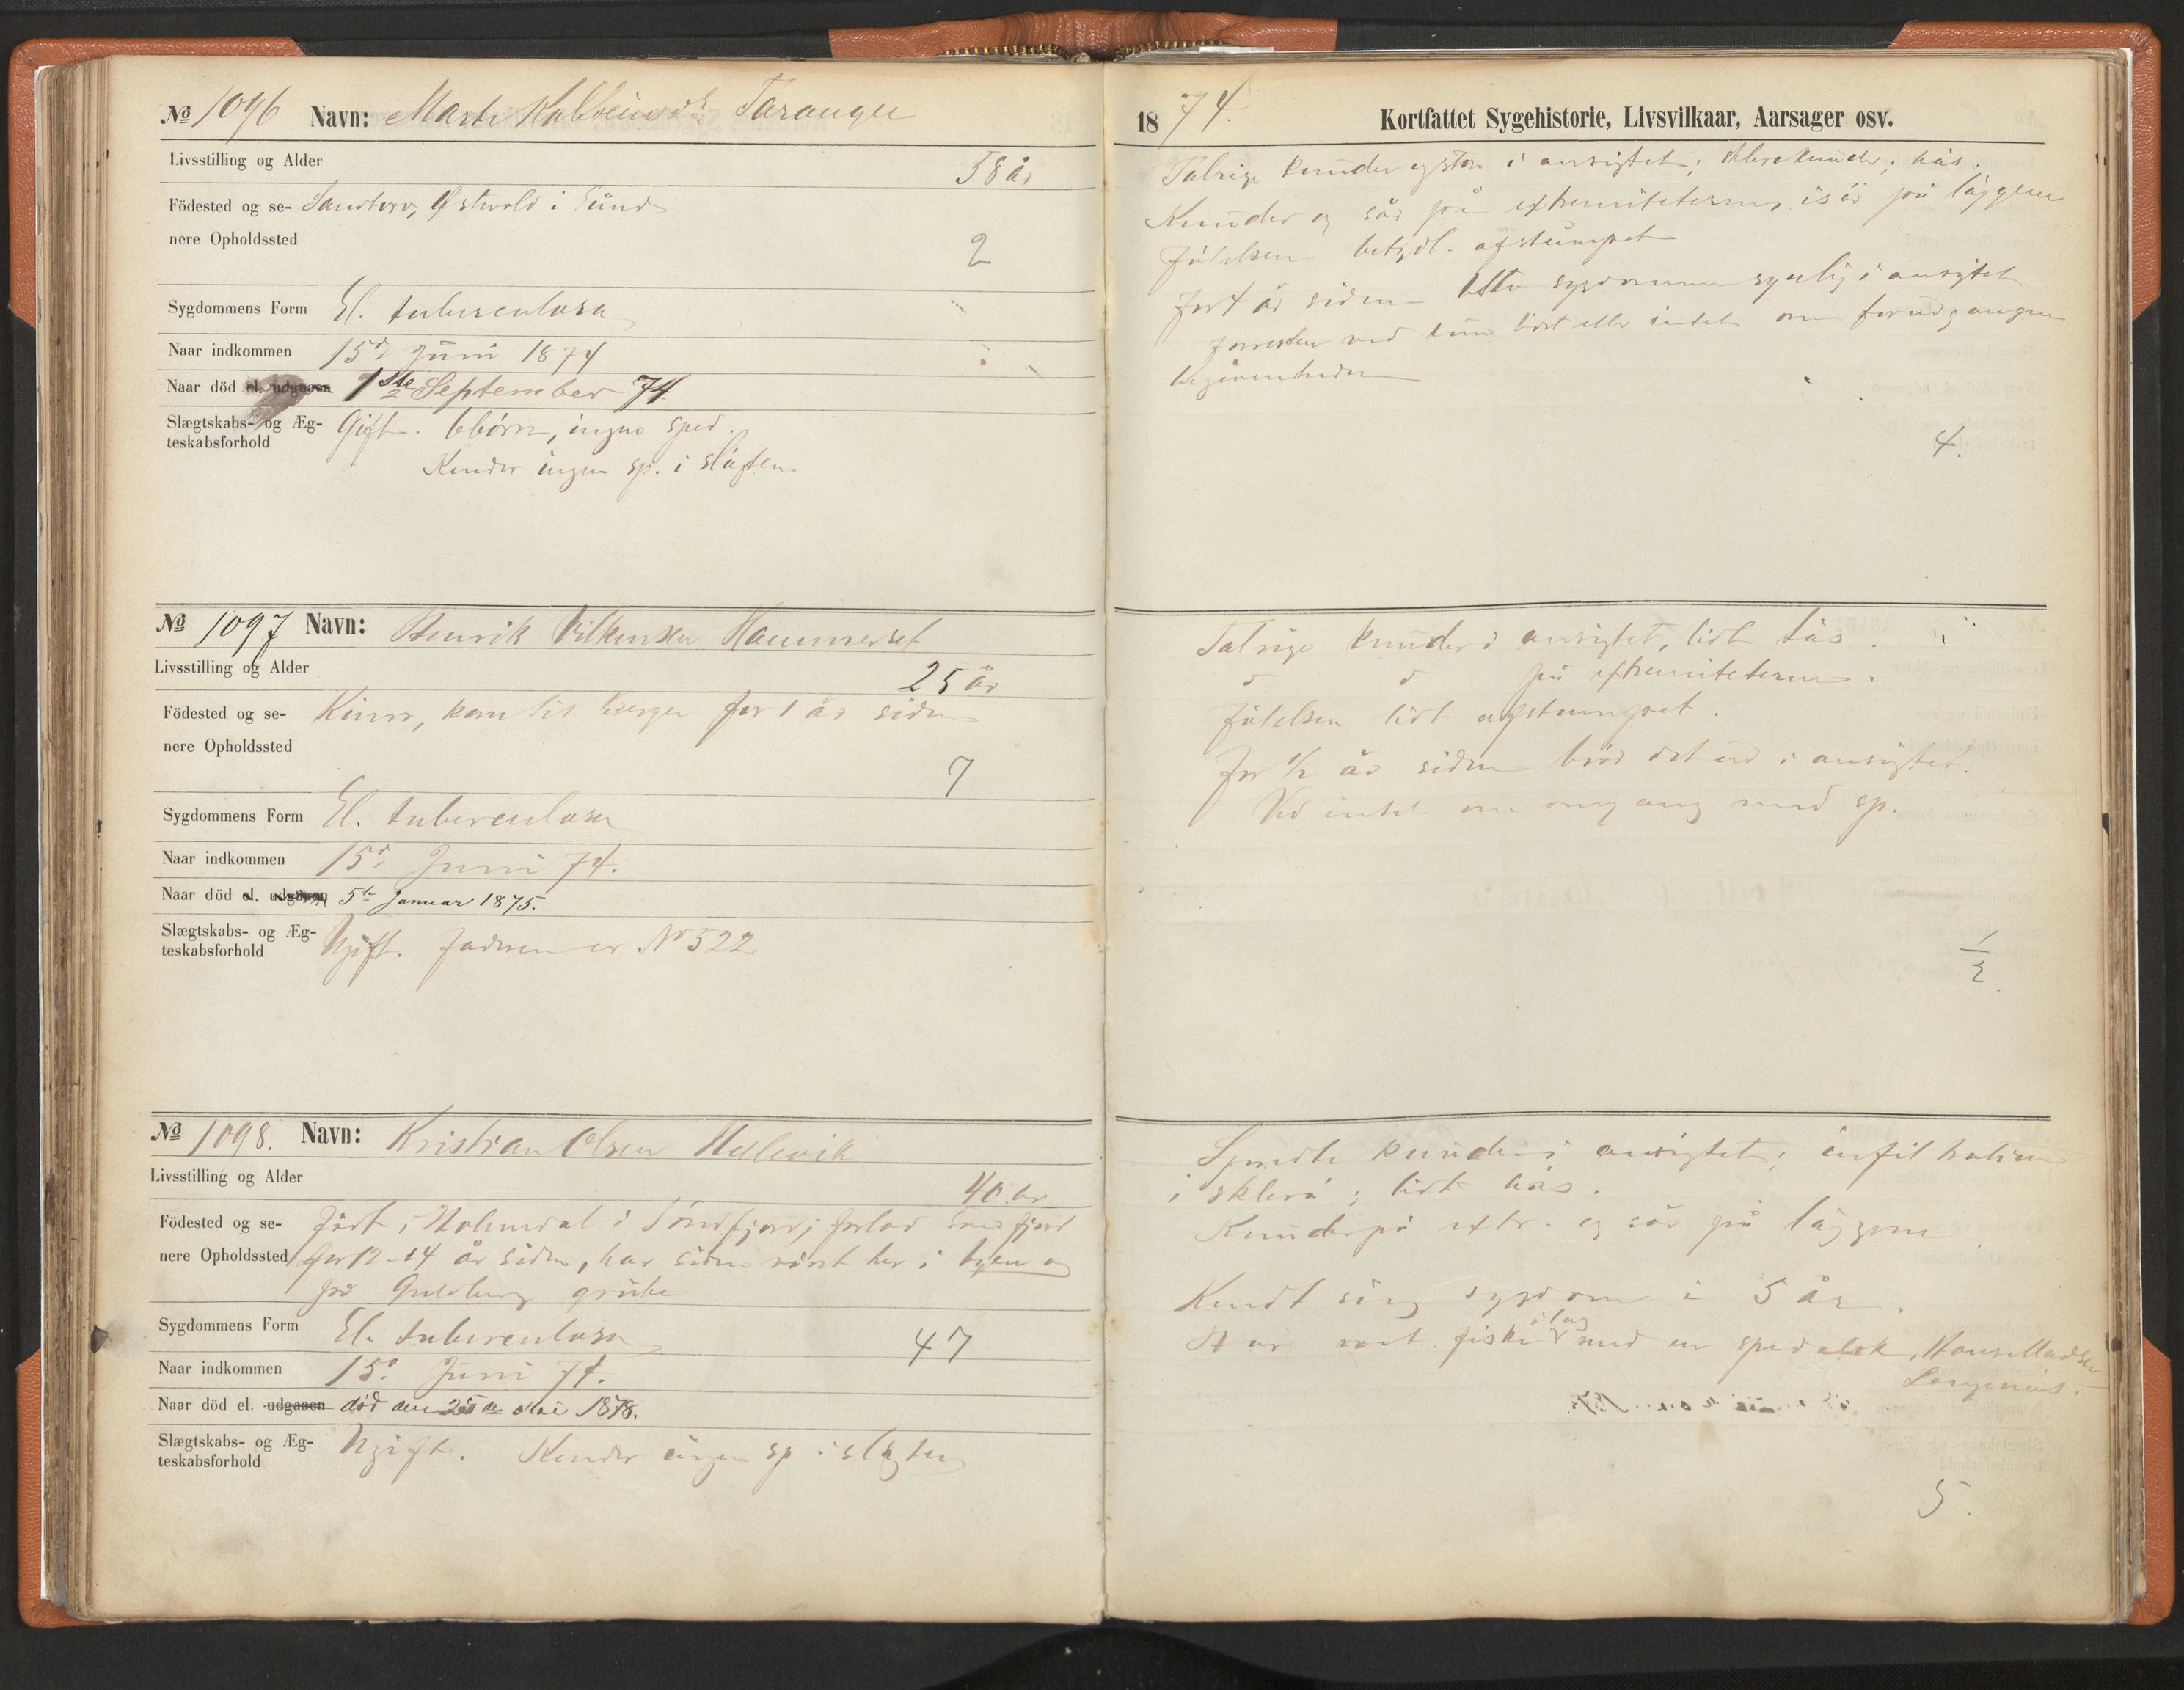 № 1096 Navn: Marte Kolbeinsdr Taranger
Livsstilling og Alder 58 år
Födested og se- Sandtorv, Østvold i Sund
nere Opholdssted 2
Sygdommens Form El. tuberculosa
Naar indkommen 15d Juni 1874
Naar död el. udgaaen 1ste September 74
Slægtskabs- og Æg- Gift. 6 börn, ingen sped.
teskabsforhold
Kender ingen sp. i slägten
№ 1097 Navn: Henrik Vilkensen Hammerset
Livsstilling og Alder 25 år
Födested og se- Kinn, kom til Bergen for 1 år siden
nere Opholdssted
7
Sygdommens Form El. tuberculosa
Naar indkommen 15d. Juni 74.
Naar död el. udgaaen 5te Januar 1875.
Slægtskabs- og Æg- Ugift. Faderen er No 522
teskabsforhold
№ 1098. Navn: Kristian Olsen Hellevik
Livsstilling og Alder 40 år
Födested og se- Födt i Holmedal i Söndfjord; forlod Söndfjord
nere Opholdssted for 12-14 år siden, har siden värt her i byen og
på grube
Sygdommens Form El. tuberculosa 47
Naar indkommen 15d. Juni 74.
Naar död el. udgaaen död den 25de Mai 1878.
Slægtskabs- og Æg- Ugift. Kender ingen sp i slägten
teskabsforhold
1874. Kortfattet Sygehistorie, Livsvilkaar, Aarsager osv.
Talrige knuder og store i ansigtet; skleraknuder; hås.
Knuder og sår på extremiteterne, isär på läggene
Fölelsen betydl. afstumpet
For 4 år siden blev sygdommen synlig i ansigtet
Forresten ved hun lidt eller intet om forudgangne
begivenheder
4.
Talrige knuder i ansigtet, lidt hås.
d d på extremiteterne.
Fölelsen lidt afstumpet.
For 1/2 år siden bröd det ud i ansigtet.
Ved intet om omgang med sp.
1/2
Spredte knuder i ansigtet; infiltration
i sklera; lidt hås.
Knuder på extr. og sår på läggene
Kendt sin sygdom i 5 år.
Har värt fiski i lag med en spedalsk, Hans Madsen
5.